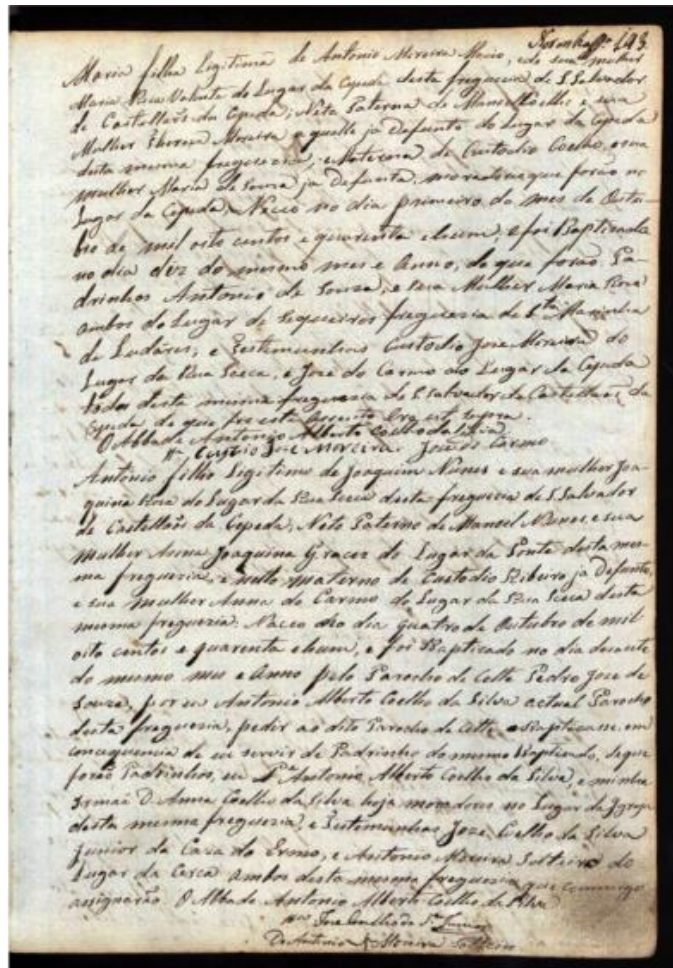 Noronha fl. 143
Maria filha Legitima de Antonio Moreira, e de sua mulher
Maria Rosa do Lugar da Cepeda desta freguezia de S. Salvador
de Castellãos da Cepeda; Neta Paterna de Manoel Coelho e sua
Mulher Moreira aquelle ja Defunto do Lugar da Cepeda
desta mesma freguezia; e Materna de Custodio Coelho, e sua
mulher Maria de Souza ja Defunta, moradores que forão no
Lugar da Cepeda. Naceo no dia primeiro do mes de Outu-
bro de mil oito centos e quarenta e hum, e foi Baptizada
no dia dez do mesmo mes e Anno, de que forão Pa-
drinhos Antonio de Souza, e sua Mulher Maria Rosa
ambos do Lugar de Sequeiros freguezia de Sta. Marinha
de Lodares, e Testemunhas Custodio Jose Moreira do
Lugar da Rua Seca, e Jose do Carmo do Lugar da Cepeda
todos desta mesma freguezia de S. Salvador de Castellãos da
Cepeda de que fiz este Assento Era ut supra.
O Abbade Antonio Alberto Coelho da Silva
Custodio Joze Moreira Joze do Carmo
Antonio filho Legitimo de Joaquim Nunes e sua mulher Joa-
quina Rosa do Lugar da Rua Seca desta freguezia de S. Salvador
de Castellãos da Cepeda; Neto Paterno de Manoel Nunes, e sua
Mulher Anna Joaquina Graces do Lugar da Ponte desta mes-
ma freguezia, e netto materno de Custodio Ribeiro, ja Defunto,
e sua Mulher Anna do Carmo do Lugar da Rua Seca desta
mesma freguezia. Naceo no dia quatro de Outubro de mil
oito centos e quarenta e hum, e foi Baptizado no dia
do mesmo mes e Anno pelo Parocho de Cette Pedro Joze de
Souza, por eu Antonio Alberto Coelho da Silva actual Parocho
desta freguezia, pedir ao dito Parocho de Cette o Baptizasse, em
concequencia de eu servir de Padrinho do mesmo Baptizado, de que
forão Padrinhos, eu Pe. Antonio Alberto Coelho da Silva, e minha
Irmaã D. Anna Coelho da Silva hoja moradores no Lugar da Igreja
desta mesma freguezia, e Testemunhas Joze Coelho da Silva
Junior da Caza do Ermo, e Antonio Moreira Solteiro do
Lugar da Cerca ambos desta mesma freguezia que commigo
assignarão O Abbade Antonio Alberto Coelho da Silva
Joze Coelho da Sa. Junior
De Antonio Moreira Solteiro